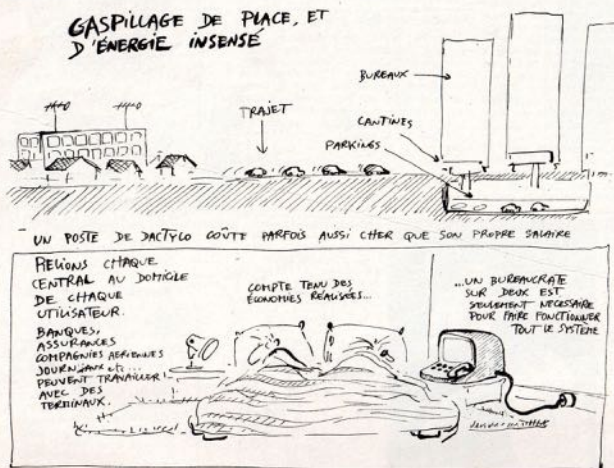 GASPILLAGE DE PLACE, ET
D'ÉNERGIE INSENSÉ
BUREAUX
TRAJET
CANTINES
PARKINGS
UN POSTE DE DACTYLO COÛTE PARFOIS AUSSI CHER QUE SON PROPRE SALAIRE
RELIONS CHAQUE
CENTRAL AU DOMICILE
DE CHAQUE
UTILISATEUR.
BANQUES,
ASSURANCES
COMPAGNIES AERIENNES
JOURNAUX etc...
PEUVENT TRAVAILLER
AVEC DES
TERMINAUX.
COMPTE TENU DES
ÉCONOMIES RÉALISÉES...
...UN BUREAUCRATE
SUR DEUX EST
SEULEMENT NECESSAIRE
POUR FAIRE FONCTIONNER
TOUT LE SYSTÈME